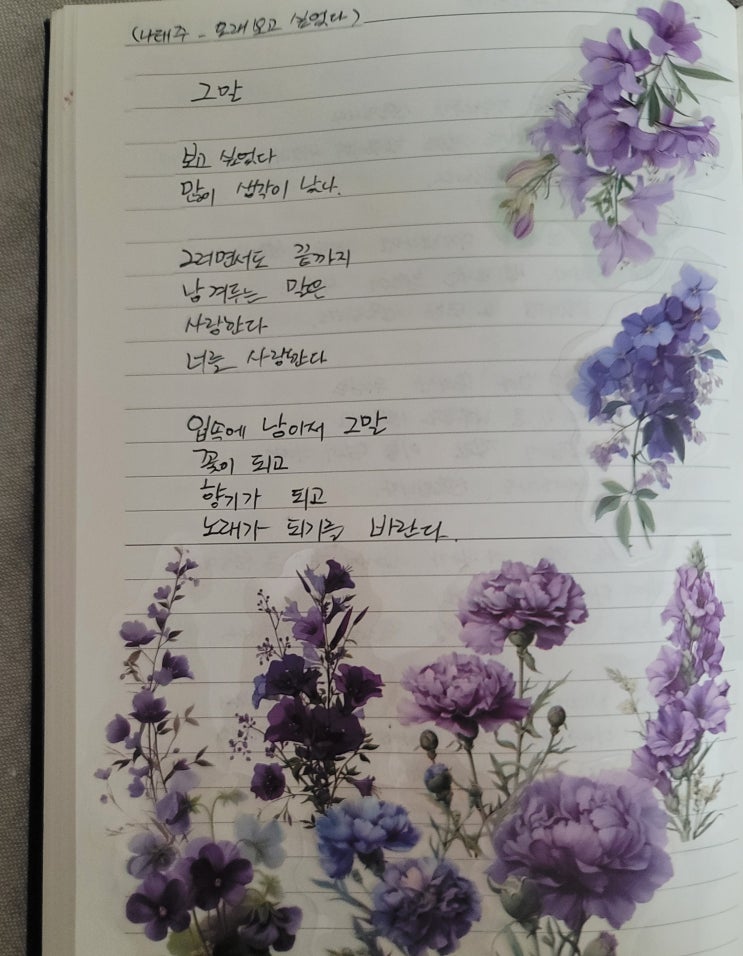 (나태주 - 오래 보고 싶었다)
그말
보고 싶었다
많이 생각이 났다.
그러면서도 끝까지
남겨두는 말은
사랑한다
너를 사랑한다
입속에 남아서 그말
꽃이 되고
향기가 되고
노래가 되기를 바란다.